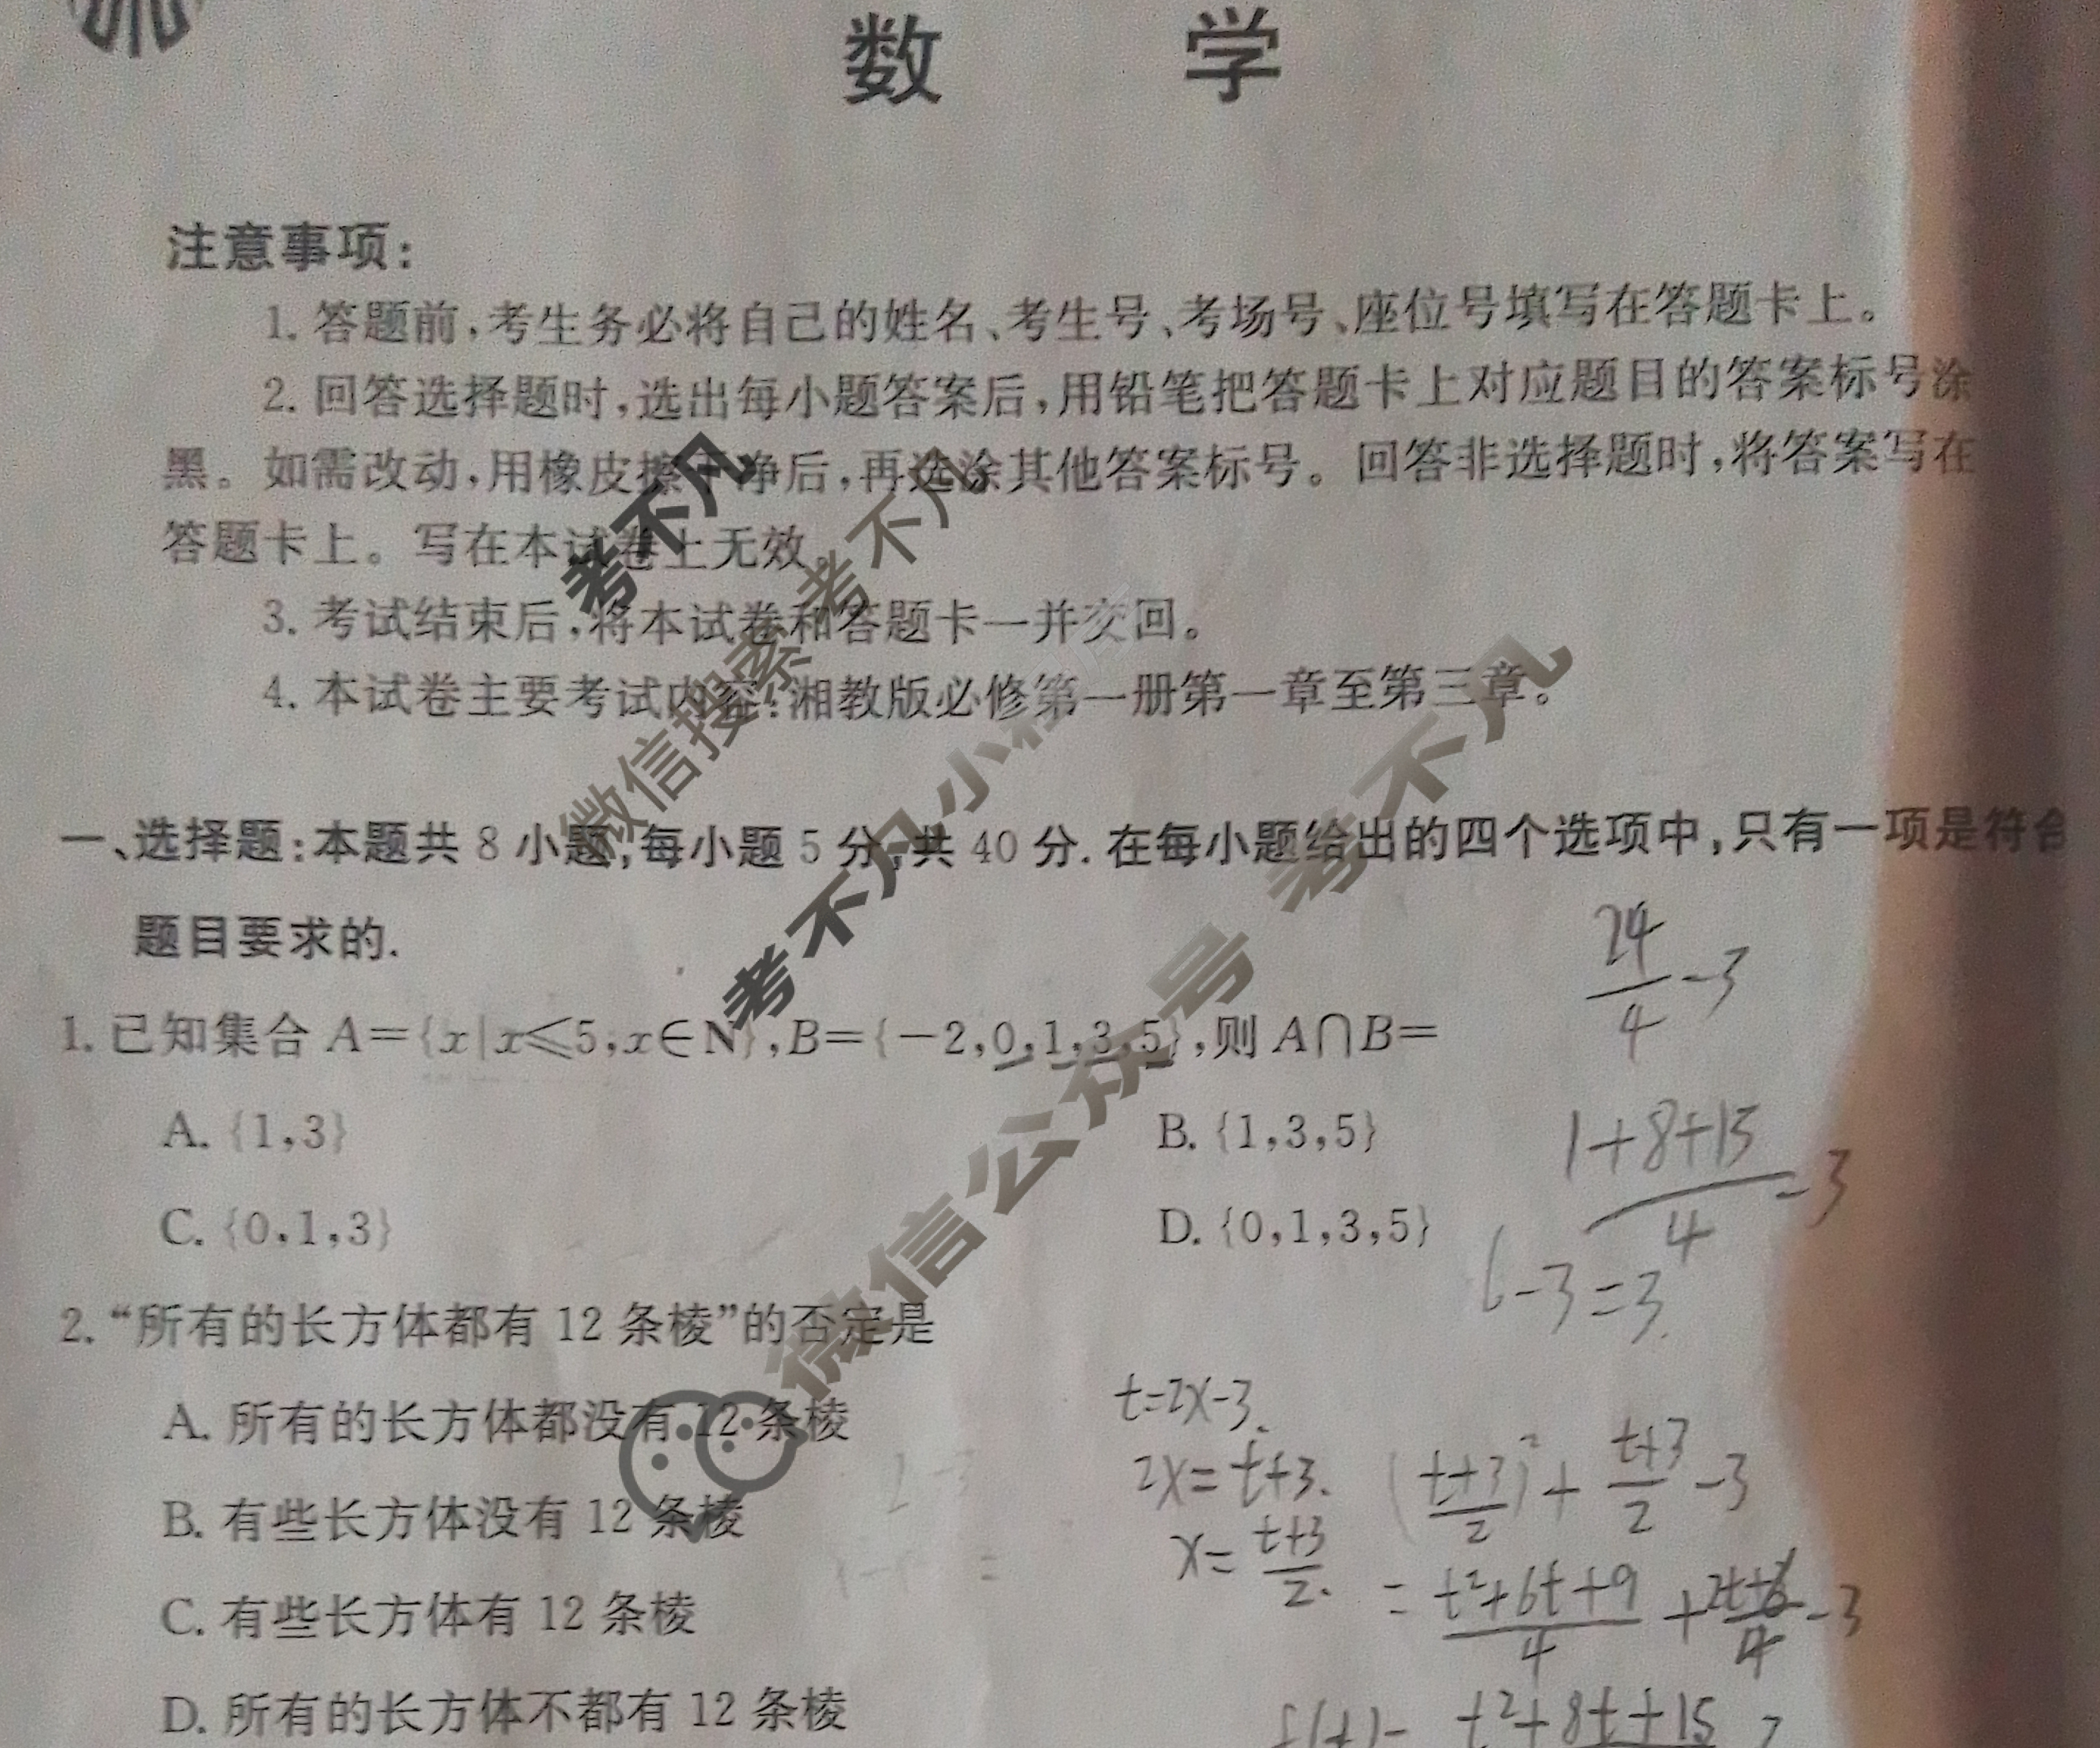 数 学
注意事项：
1. 答题前，考生务必将自己的姓名、考生号、考场号、座位号填写在答题卡上。
2. 回答选择题时，选出每小题答案后，用铅笔把答题卡上对应题目的答案标号涂
黑。如需改动，用橡皮擦干净后，再选涂其他答案标号。回答非选择题时，将答案写在
答题卡上。写在本试卷上无效。
3. 考试结束后，将本试卷和答题卡一并交回。
4. 本试卷主要考试内容：湘教版必修第一册第一章至第三章。
考不凡
微信搜索 考不凡
考不凡小程序
微信公众号 考不凡
一、选择题：本题共 8 小题，每小题 5 分，共 40 分. 在每小题给出的四个选项中，只有一项是符合
题目要求的.
24/4-3
1. 已知集合 A={x|x≤5,x∈N},B={-2,0,1,3,5},则 A∩B=
A. {1,3}
B. {1,3,5}
1+8+15/4-3
C. {0,1,3}
D. {0,1,3,5}
6-3=3.
2. “所有的长方体都有 12 条棱”的否定是
A. 所有的长方体都没有 12 条棱
B. 有些长方体没有 12 条棱
C. 有些长方体有 12 条棱
D. 所有的长方体不都有 12 条棱
t=2x-3.
2x=t+3.
(t+3/2)²+t+3/2-3
x=t+3/2.
=t²+6t+9/4+2t+6/4-3
f(t)=t²+8t+15